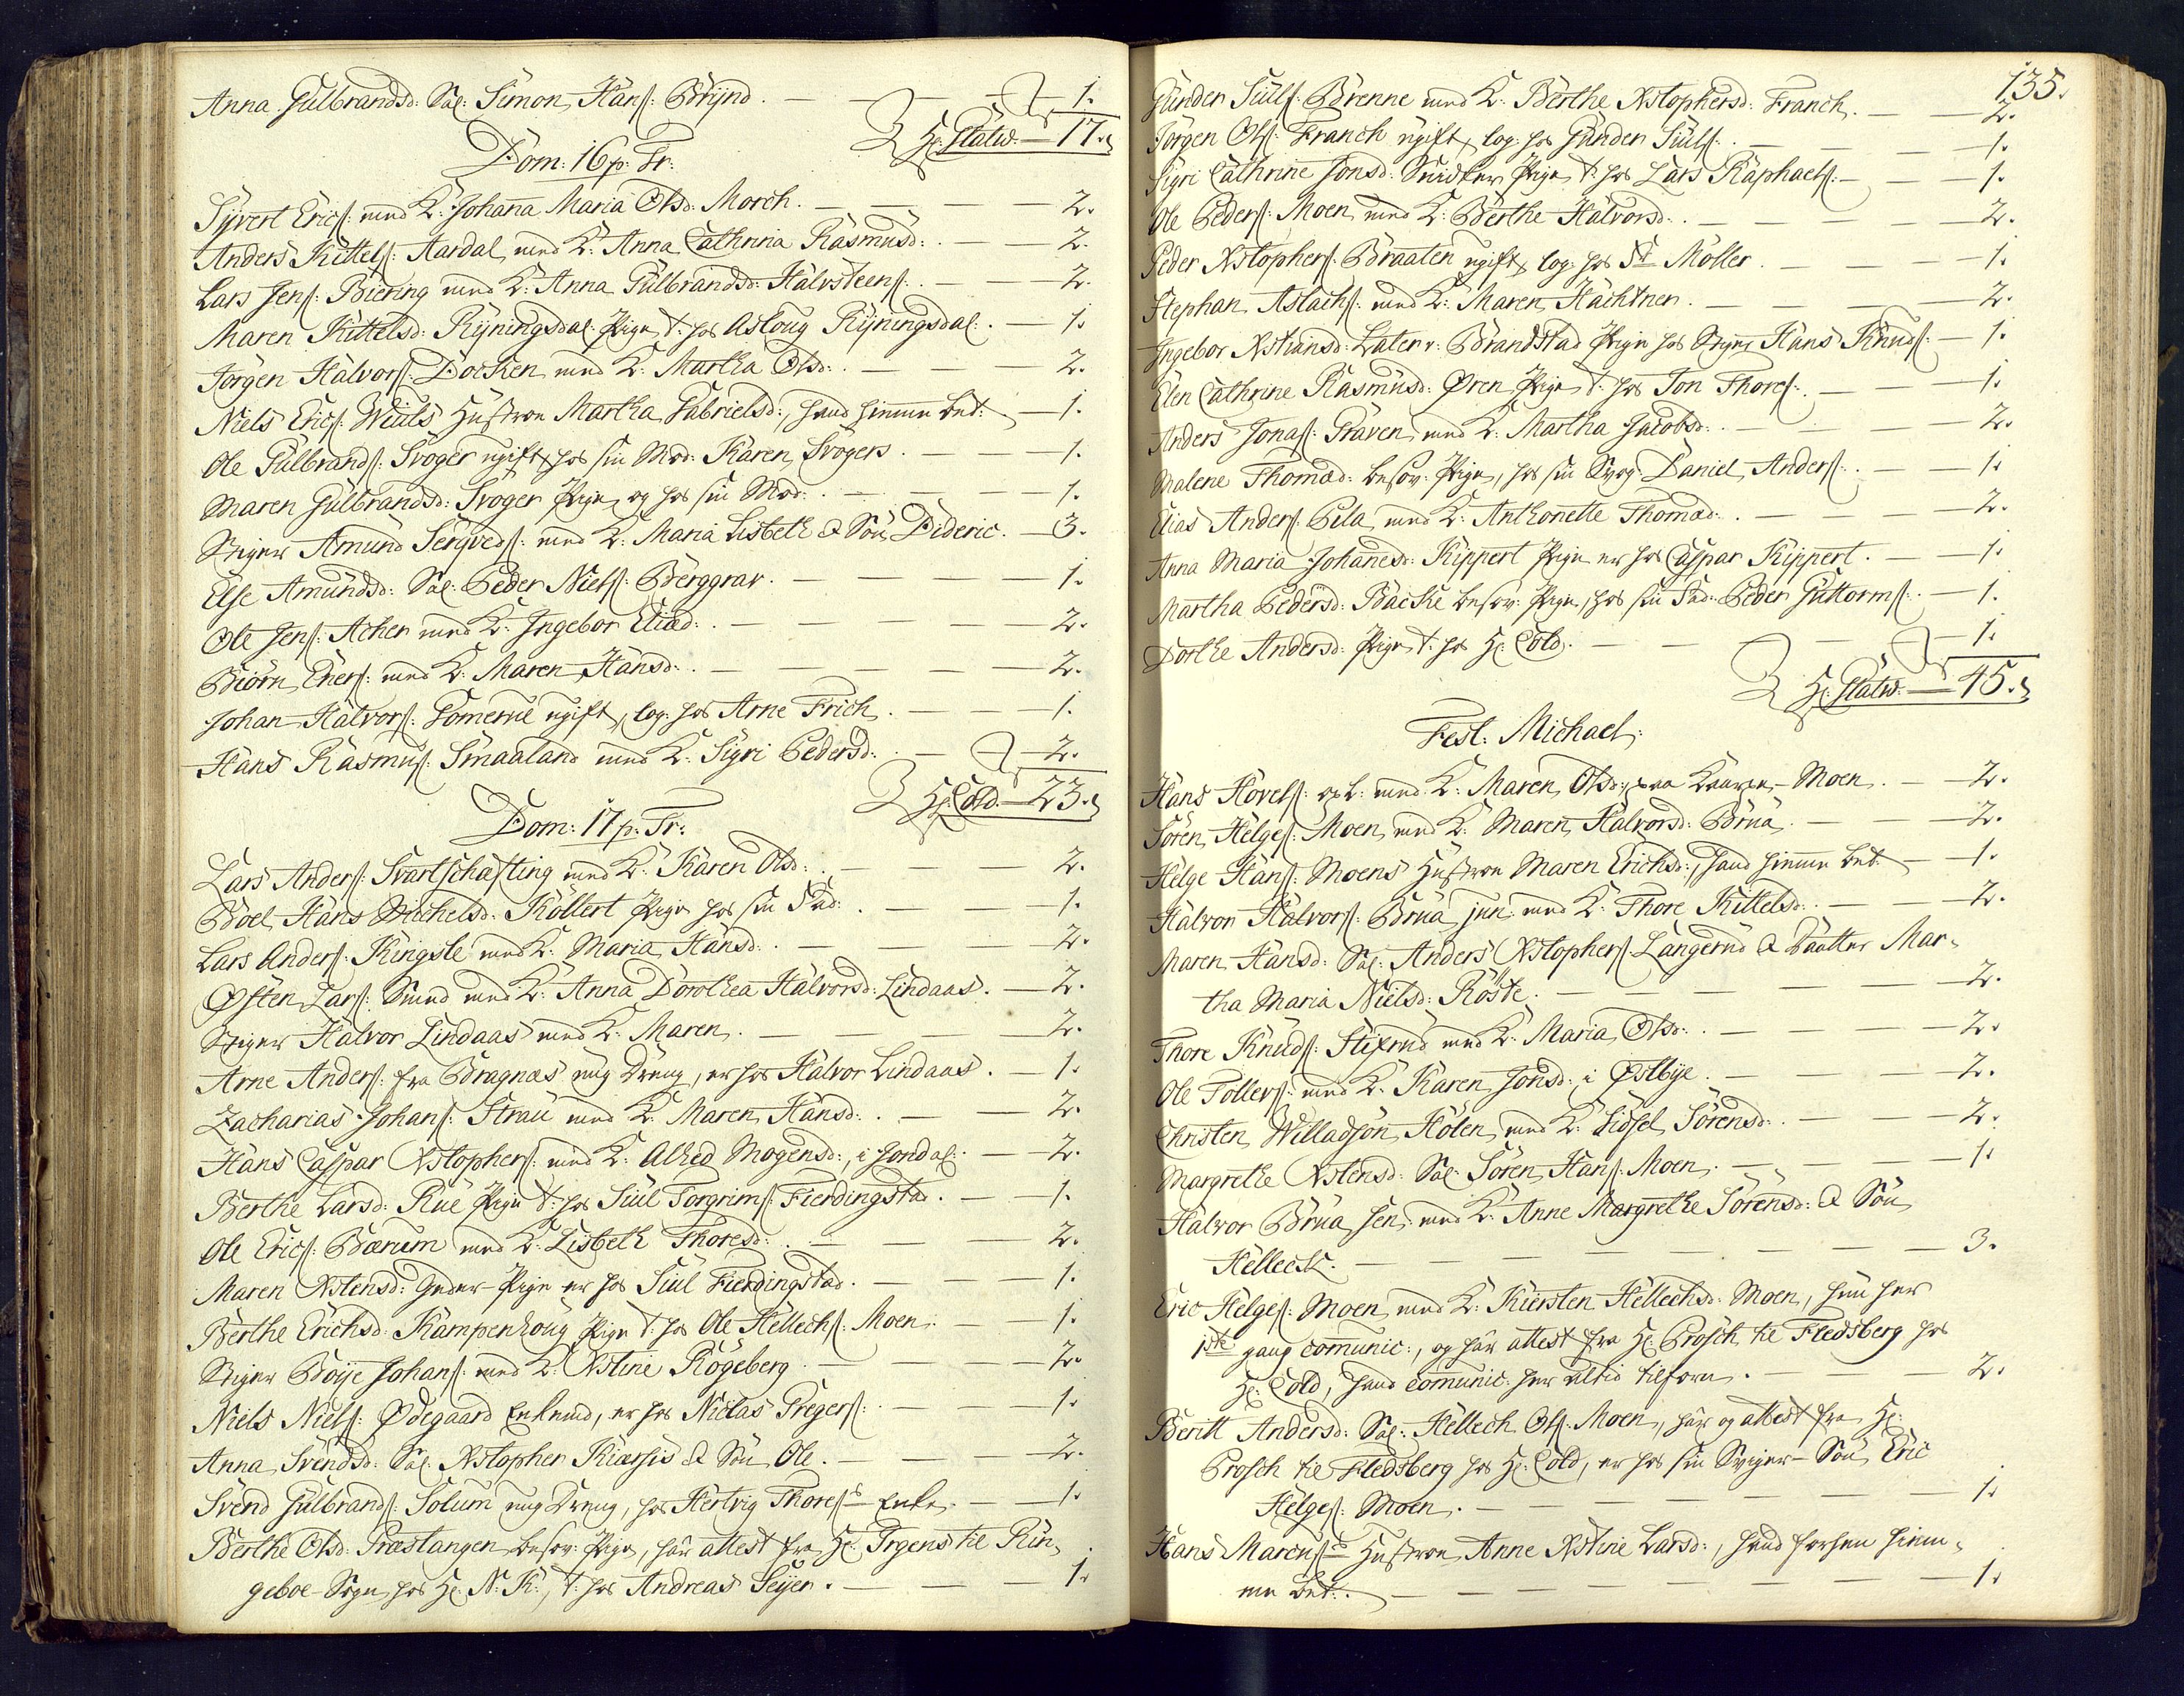 Anna Gulbrandsd: Sal: Simon Hans: Brynd. — 1.
Hr: Statw. — 17.
Dom: 16 p: Tr:
Syvert Erics: med K: Johanna Maria Olsd: Morch. — 2.
Anders Kittels: Aardal, med K: Anna Cathrina Rasmusd: — 2.
Lars Jens: Biering med K: Anna Gulbrandsd: Halvsteens: — 2.
Maren Kittelsd: Ryningsdal: Pige, t: hos Asloug Ryningsdal: — 1.
Jørgen Halvors: Docken med K: Martha Olsd: — 2.
Niels Erics: Wiuls Hustroe Martha Gabrielsd:, hand hiemme bet: — 1.
Ole Gulbrands: Svoger ugift, hos sin Mod: Karen Svogers — 1.
Maren Gulbrandsd: Svoger Pige, og hos sin Mod: — 1.
Stiger Amund Sergveds: med K: Maria Lisbeth & Søn Dideric. — 3.
Else Amundsd: Sal: Peder Niels: Berggrav. — 1.
Ole Jens: Acher med K: Ingebor Eliæd: — 2.
Biørn Eners: med K: Maren Hansd: — 2.
Johan Halvors: Gomerue ugift, log: hos Arne Frich — 1.
Hans Rasmus: Smaaland med K: Sigri Pedersd: — 2.
Hr: Cold. — 23.
Dom: 17 p: Tr:
Lars Anders: Svartschafting med K: Karen Olsd: — 2.
Boel Hans Michelsd: Kollert Pige hos sin Fad: — 1.
Lars Anders: Kingsle med K: Maria Hansd: — 2.
Østen Lars: Smed med K: Anna Dorothea Halvorsd: Lindaas. — 2.
Stiger Halvor Lindaas med K: Maren. — 2.
Arne Anders: fra Bragnæs ung Dreng, er hos Halvor Lindaas. — 1.
Zacharias Johans: Strau med K: Maren Hansd: — 2.
Hans Caspar Xstophers: med K: Alhed Mogensd:, i Jondal: — 2.
Berthe Larsd: Rue Pige t: hos Siul Torgrims: Fierdingstad. — 1.
Ole Erics: Bærum med K: Lisbeth Thoresd: — 2.
Maren Xstensd: Pige er hos Siul Fierdingstad. — 1.
Berthe Erichsd: Kampenhoug Pige t: hos Ole Hellechs: Moen. — 1.
Stiger Boije Johans: med K: Xstine Rogeberg. — 2.
Niels Niels: Ødegaard Enkemd, er hos Niclas Gregers: — 1.
Anna Svendsd: Sal: Xstopher Kiærsis & Søn Ole. — 2.
Svend Gulbrands: Solum ung Dreng, hos Hertvig Thores: Enke. — 1.
Berthe Olsd: Præstangen besov: Pige, har attest fra Hr: Irgens til Rin-
geboe Sogn, hos Hr: N: K:, t: hos Andreas Seyer. — 1.
135.
Gunder Siuls: Brenne med K: Berthe Xstophersd: Franch. — 2.
Jørgen Ols: Franch ugift, log: hos Gunder Siuls: — 1.
Sigri Cathrine Jonsd: Snidker Pige, t: hos Lars Raphaels: — 1.
Ole Peders: Moen, med K: Berthe Halvorsd: — 2.
Peder Xstophers: Braaten ugift, log: hos Sr Møller. — 1.
Stephan Aslachs: med K: Maren Hachtner. — 2.
Ingebor Xstiansd: Later v: Brandstad Pige hos Stiger Hans Knuds: — 1.
Elen Cathrine Rasmusd: Øren Pige t: hos Jon Thores: — 1.
Anders Jonas: Graven, med K: Martha Jacobsd: — 2.
Malene Thomæd: besov: Pige, hos sin Svog: Daniel Anders: — 1.
Elias Anders: Pila, med K: Anthonette Thomæd: — 2.
Anna Maria Johannesd: Kippert Pige er hos Caspar Kippert. — 1.
Martha Pedersd: Backe besov: Pige, hos sin Fad: Peder Guttorms: — 1.
Dorthe Andersd: Pige t: hos Hr: Cold. — 1.
Hr: Statw. — 45.
Fest: Michael:
Hans Hovels: med K: Maren Olsd: paa Moen. — 2.
Søren Helges: Moen, med K: Maren Halvorsd: Brua. — 2.
Helge Hans: Moens Hustroe Maren Erichsd:, hand hiemme bet: — 1.
Halvor Halvors: Brua jun: med K: Thore Kittelsd: — 2.
Maren Hansd: Sal: Anders Xstophers: Langerud & Daatter Mar-
tha Maria Nielsd: Røste. — 2.
Thore Knuds: Stixrud med K: Maria Olsd: — 2.
Ole Tollevs: med K: Karen Jonsd: i Østbye. — 2.
Christen Willadsøn Holen, med K: Sidsel Sørensd: — 2.
Margrethe Xstensd: Sal: Søren Hans: Moen. — 1.
Halvor Brua Sen: med K: Anne Margrethe Sørensd: & Søn
Hellech. — 3.
Eric Helges: Moen, med K: Kiersten Hellechsd: Moen, hun her
1ste gang communic:, og har attest fra Hr: Prosch til Fledsberg hos
Hr: Cold, hand communic: her altid tilforn. — 2.
Beritt Andersd: Sal: Hellech Ols: Moen, har og attest fra Hr:
Prosch til Fledsberg hos Hr: Cold, er hos sin Sviger-Søn Eric
Helges: Moen. — 1.
Hans Marcus: Hustroe Anne Xstine Larsd:, hand forhen hiem-
me bet: — 1.